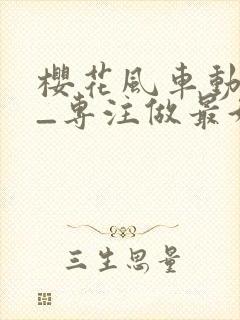 櫻花風車動
—專注做最
三生思量